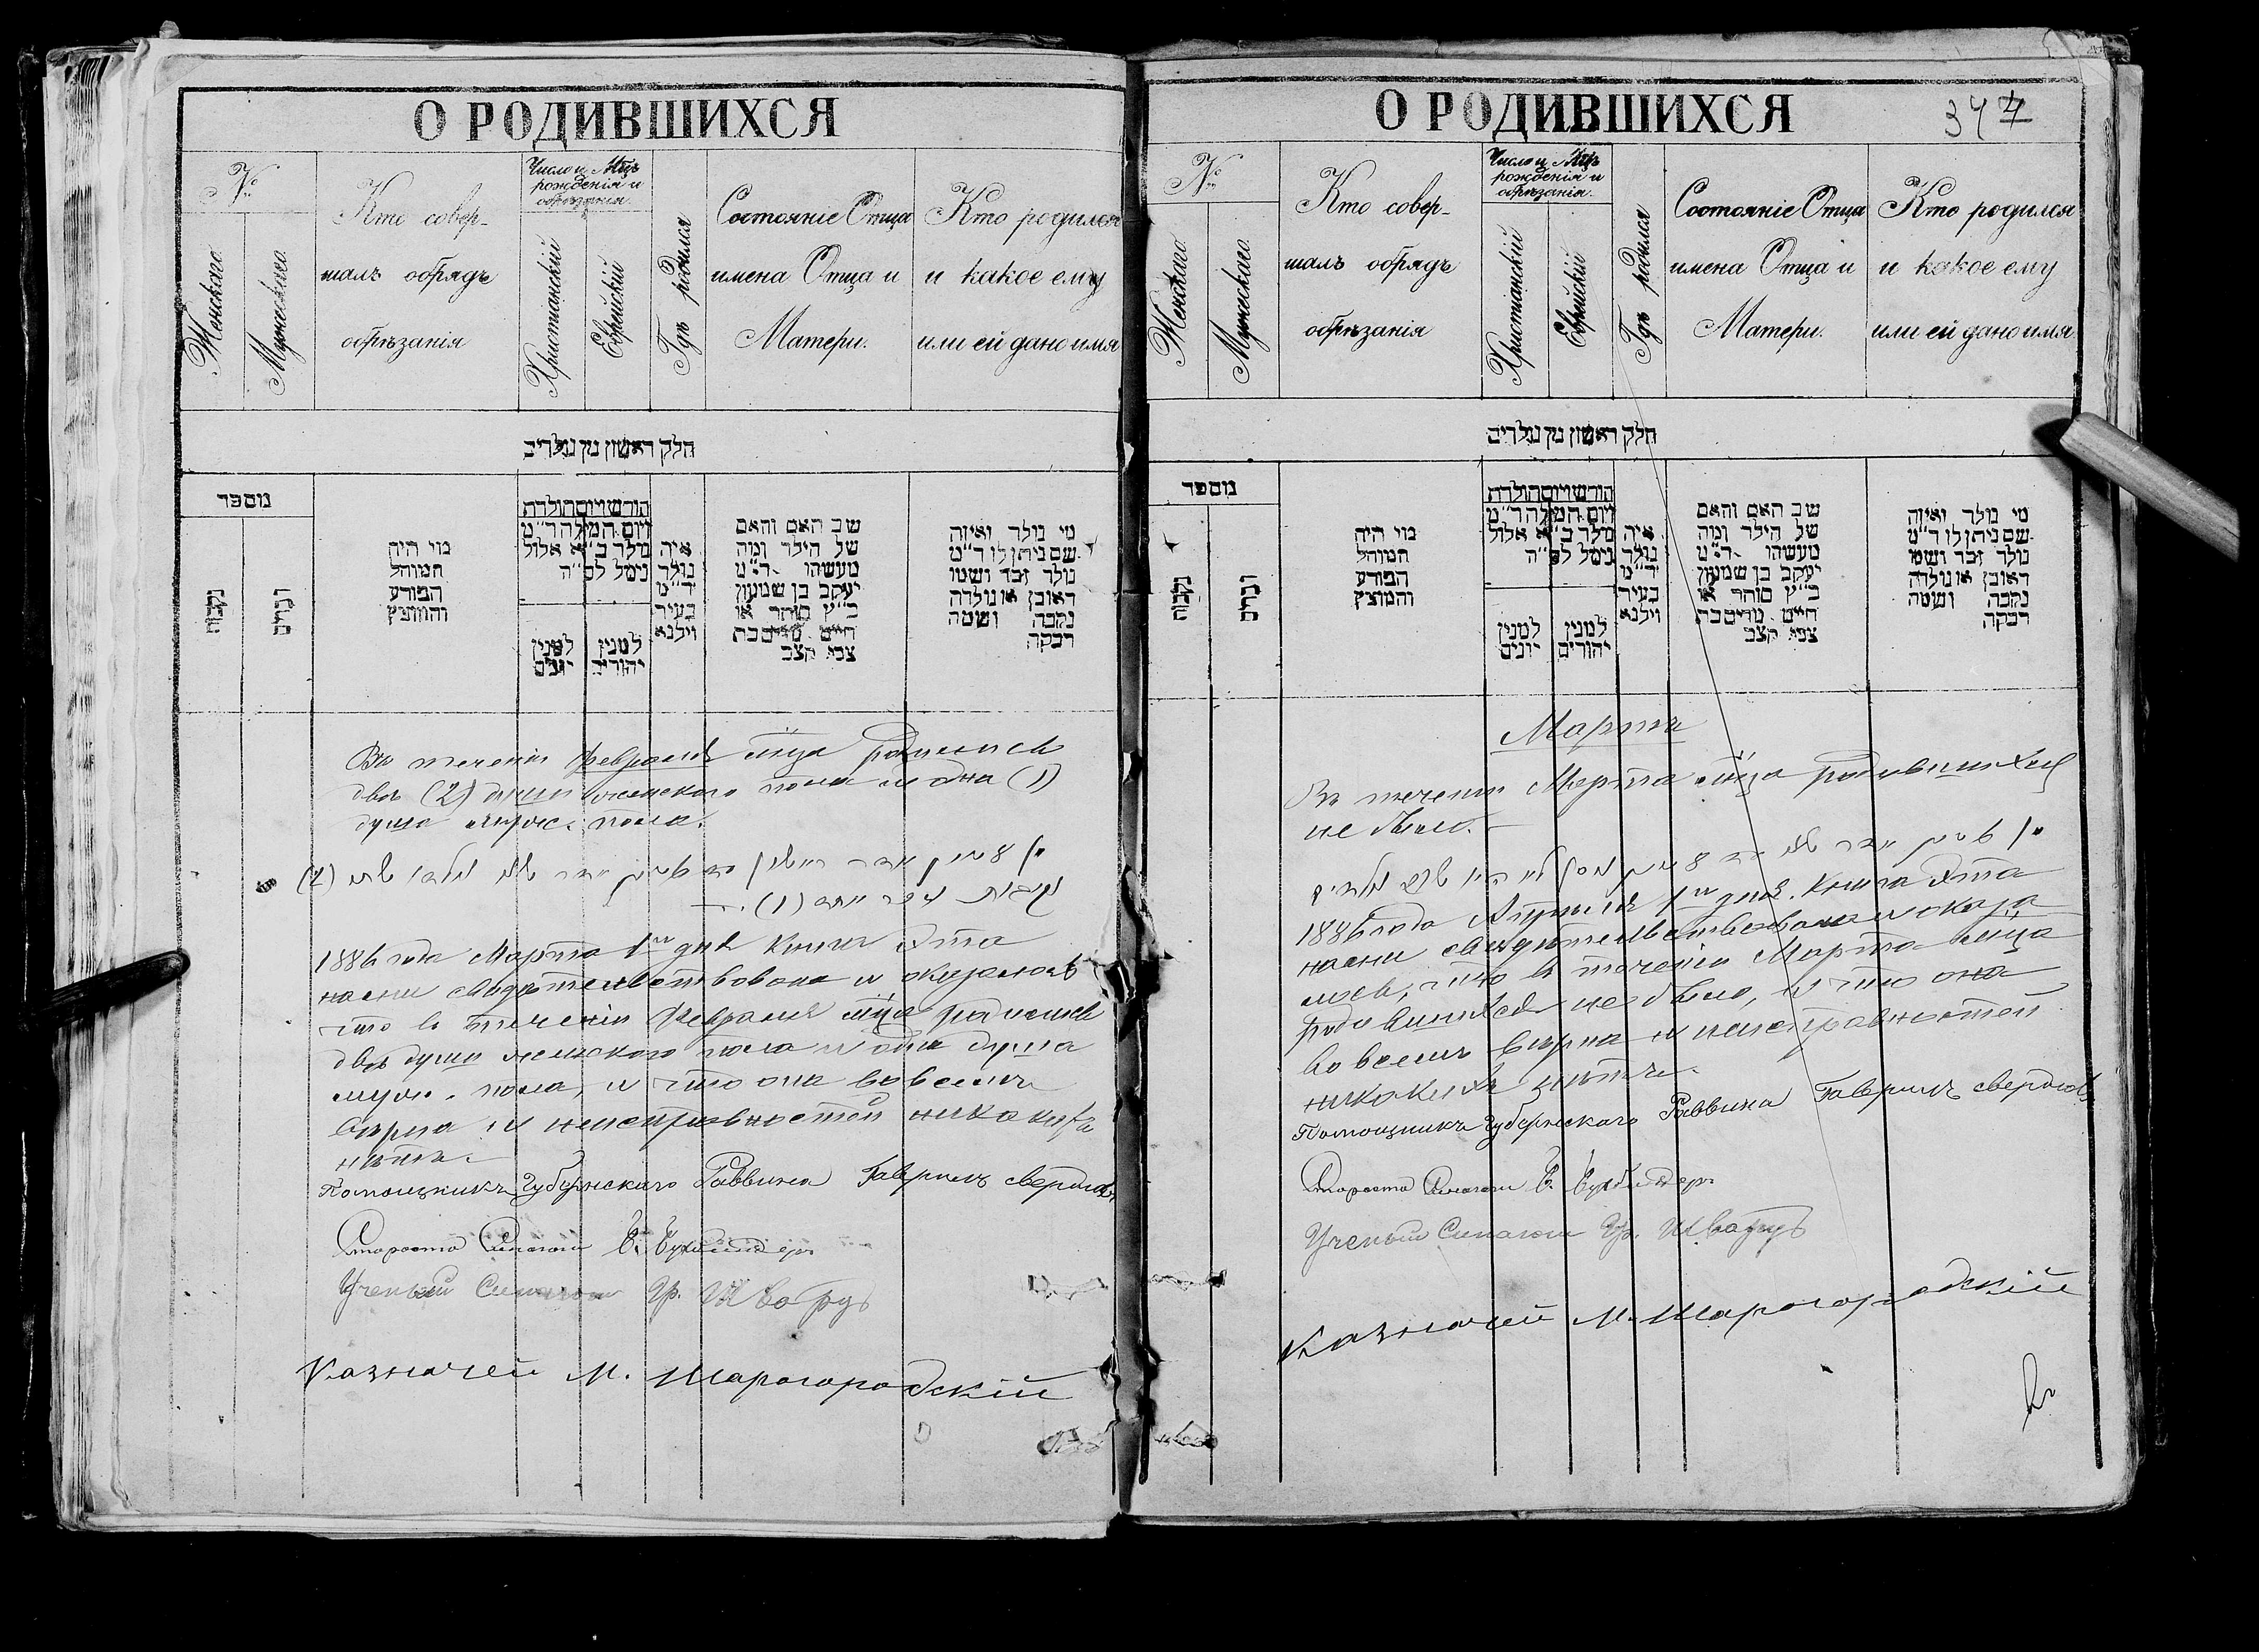 О РОДИВШИХСЯ
№
Женскаго
Мужескаго
Кто совер-
шалъ обрядъ
обрѣзанія
Число и Мцъ
рожденія и
обрѣзанія.
Христіанскій
Еврейскій
Гдѣ родился
Состояніе Отца
имена Отца и
Матери.
Кто родился
и какое ему
или ей дано имя
חלק ראשון מן נולדים
מספר
נקבות
זכרים
מי היה
המוהל
הפורע
והמוצץ
חודש ויום הולדת
ויום המילה ד״מ
נולד ב״א אלול
נימל לס״ה
למנין
יונים
למנין
יהודים
איה
נולד
ד״מ
בעיר
וילנא
שב האם והאם
של הילד ומה
מעשהו ד״מ
יעקב בן שמעון
כ״ץ סוחר או
חיים מרים בת
צבי קצב
מי נולד ואיזה
שם ניתן לו ד״מ
נולד זכר ושמו
ראובן או נולדה
נקבה ושמה
רבקה
Въ теченіи Февраля мца родились
двѣ (2) души женскаго пола и одна (1)
душа мужс. пола.
1886 года Марта 1го дня Книга эта
нами свидѣтельствована и оказалось
что въ теченіи Февраля мца родились
двѣ души женскаго пола и одна душа
муж. пола, и что она во всемъ
вѣрна и неисправностей никакихъ
нѣтъ.
Помощникъ Губернскаго Раввина Гавріилъ Свердловъ
Староста Синагоги
Ученый Синагоги Гр. Шварцъ
Казначей М. Шарогородскій
О РОДИВШИХСЯ
347
№
Женскаго
Мужескаго
Кто совер-
шалъ обрядъ
обрѣзанія
Число и Мцъ
рожденія и
обрѣзанія.
Христіанскій
Еврейскій
Гдѣ родился
Состояніе Отца
имена Отца и
Матери.
Кто родился
и какое ему
или ей дано имя.
חלק ראשון מן נולדים
מספר
נקבות
זכרים
מי היה
המוהל
הפורע
והמוצץ
חודש ויום הולדת
ויום המילה ד״מ
נולד ב״א אלול
נימל לס״ה
למנין
יונים
למנין
יהודים
איה
נולד
ד״מ
בעיר
וילנא
שב האם והאם
של הילד ומה
מעשהו ד״מ
יעקב בן שמעון
כ״ץ סוחר או
חיים מרים בת
צבי קצב
מי נולד ואיזה
שם ניתן לו ד״מ
נולד זכר ושמו
ראובן או נולדה
נקבה ושמה
רבקה
Марта
Въ теченіи Марта мца родившихся
не было.
1886 года Апрѣля 1го дня. Книга эта
нами свидѣтельствована и оказа
лось, что въ теченіи Марта мца
родившихся не было, и что она
во всемъ вѣрна и неисправностей
никакихъ нѣтъ.
Помощникъ Губернскаго Раввина Гавріилъ Свердловъ
Староста Синагоги
Ученый Синагоги Гр. Шварцъ
Казначей М. Шарогородскій